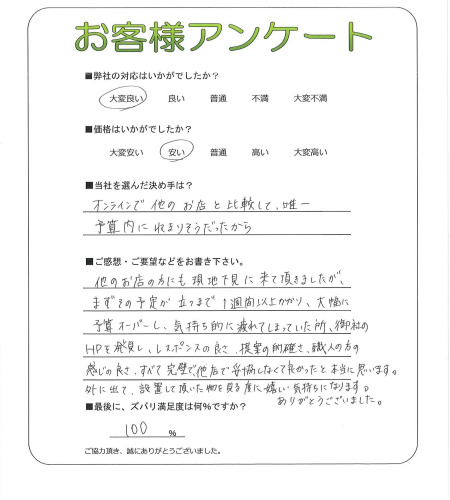 お客様アンケート
■弊社の対応はいかがでしたか?
大変良い 良い 普通 不満 大変不満
■価格はいかがでしたか?
大変安い 安い 普通 高い 大変高い
■当社を選んだ決め手は?
オンラインで他のお店と比較して、唯一
予算内に収まりそうだったから
■ご感想・ご要望などをお書き下さい。
他のお店の方にも現地下見に来て頂きましたが、
まずその予定が立つまで1週間以上かかり、大幅に
予算オーバーし、気持ち的に疲れてしまっていた所、御社の
HPを発見し、レスポンスの良さ、提案の的確さ、職人の方の
感じの良さ、すべて完璧で他店で妥協しなくて良かったと本当に思います。
外に出て、設置して頂いた物を見る度に嬉しい気持ちになります。
ありがとうございました。
■最後に、ズバリ満足度は何%ですか?
100 %
ご協力頂き、誠にありがとうございました。